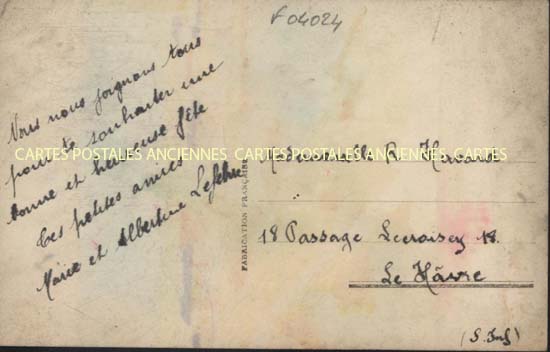 F 04024
Nous nous joignons tous
pour te souhaiter une
bonne et heureuse fête
Tes petites amies
Marie et Albertine Lefebvre
CARTES POSTALES ANCIENNES CARTES POSTALES ANCIENNES CARTES POSTALES ANCIENNES
FABRICATION FRANÇAISE
Mademoiselle
18 Passage Lecroisey 18.
Le Hâvre
(S. Inf)